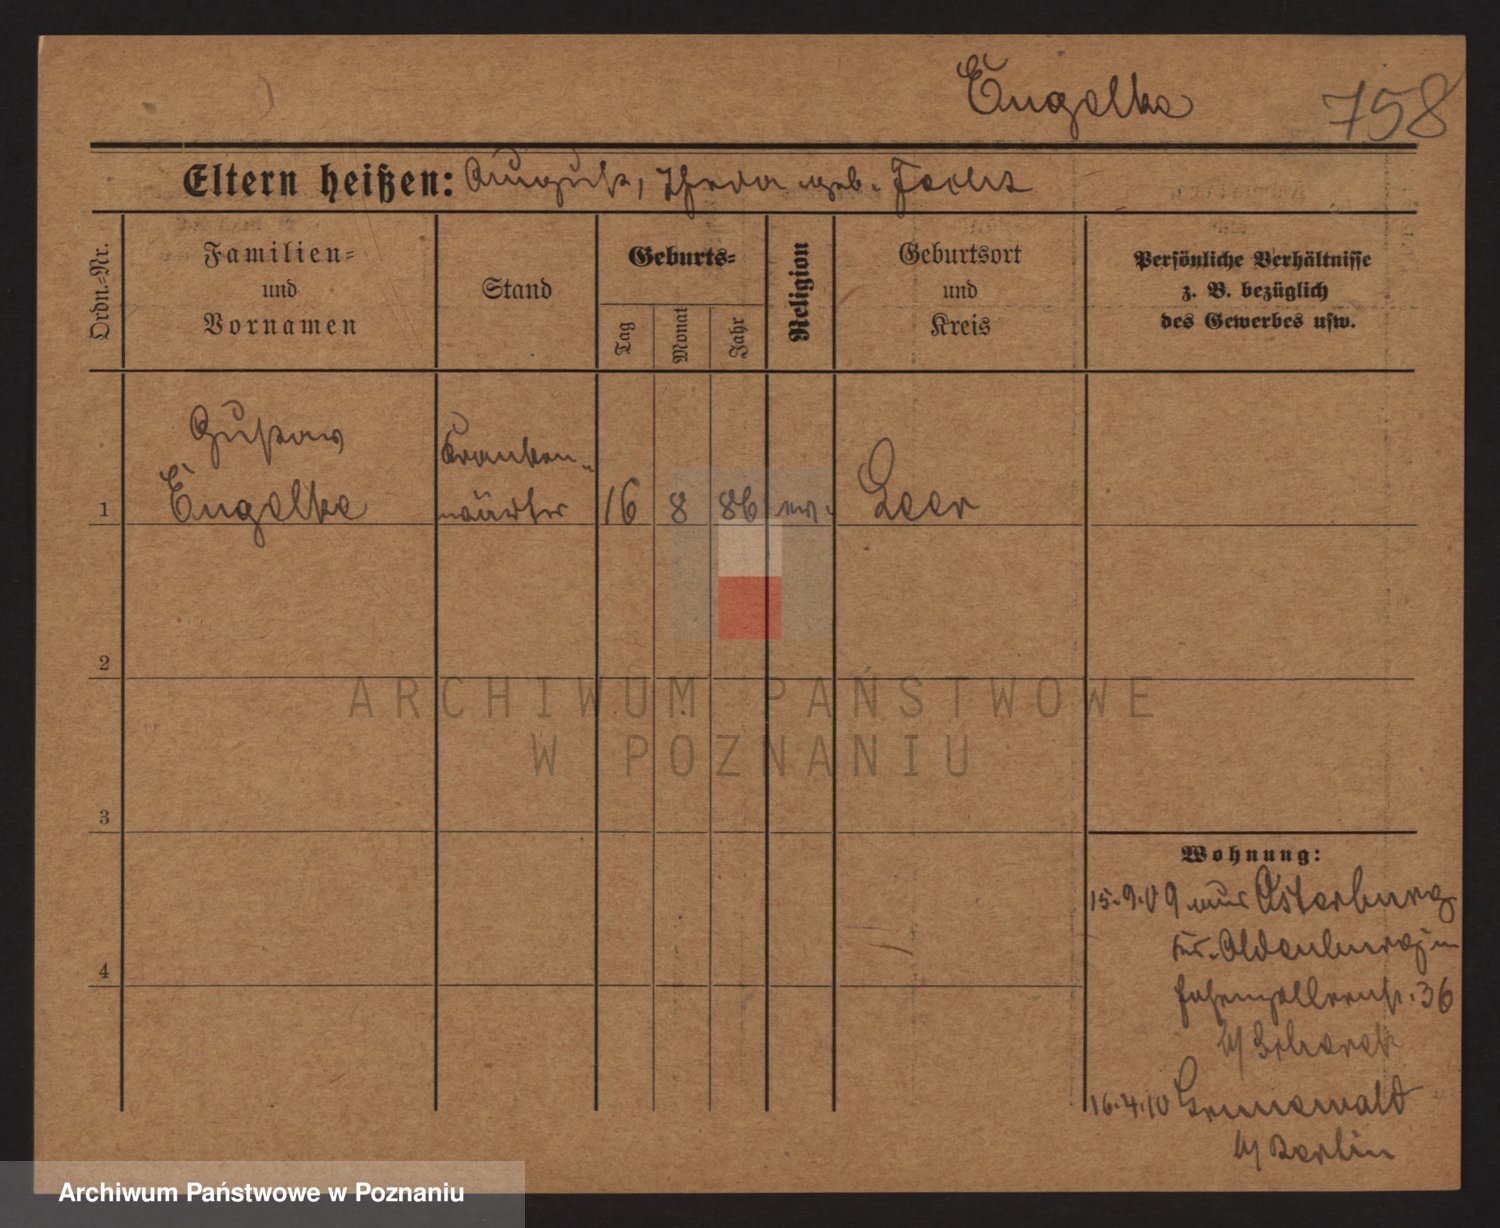 Engelke
758
Eltern heißen: August, Theda geb.
Ordn.-Nr.
Familien-
und
Vornamen
Stand
Geburts-
Tag
Monat
Jahr
Religion
Geburtsort
und
Kreis
Persönliche Verhältnisse
z. B. bezüglich
des Gewerbes usw.
Gustav
Engelke
Kranken-
wärter
1
16 8 86 ev. Leer
2
3
4
Wohnung:
15.9.09 aus Osterburg
Kr. Oldenburg in
Hohenzollernstr. 36
b/
16.4.10 Grunewald
b/ Berlin
ARCHIWUM PAŃSTWOWE
W POZNANIU
Archiwum Państwowe w Poznaniu